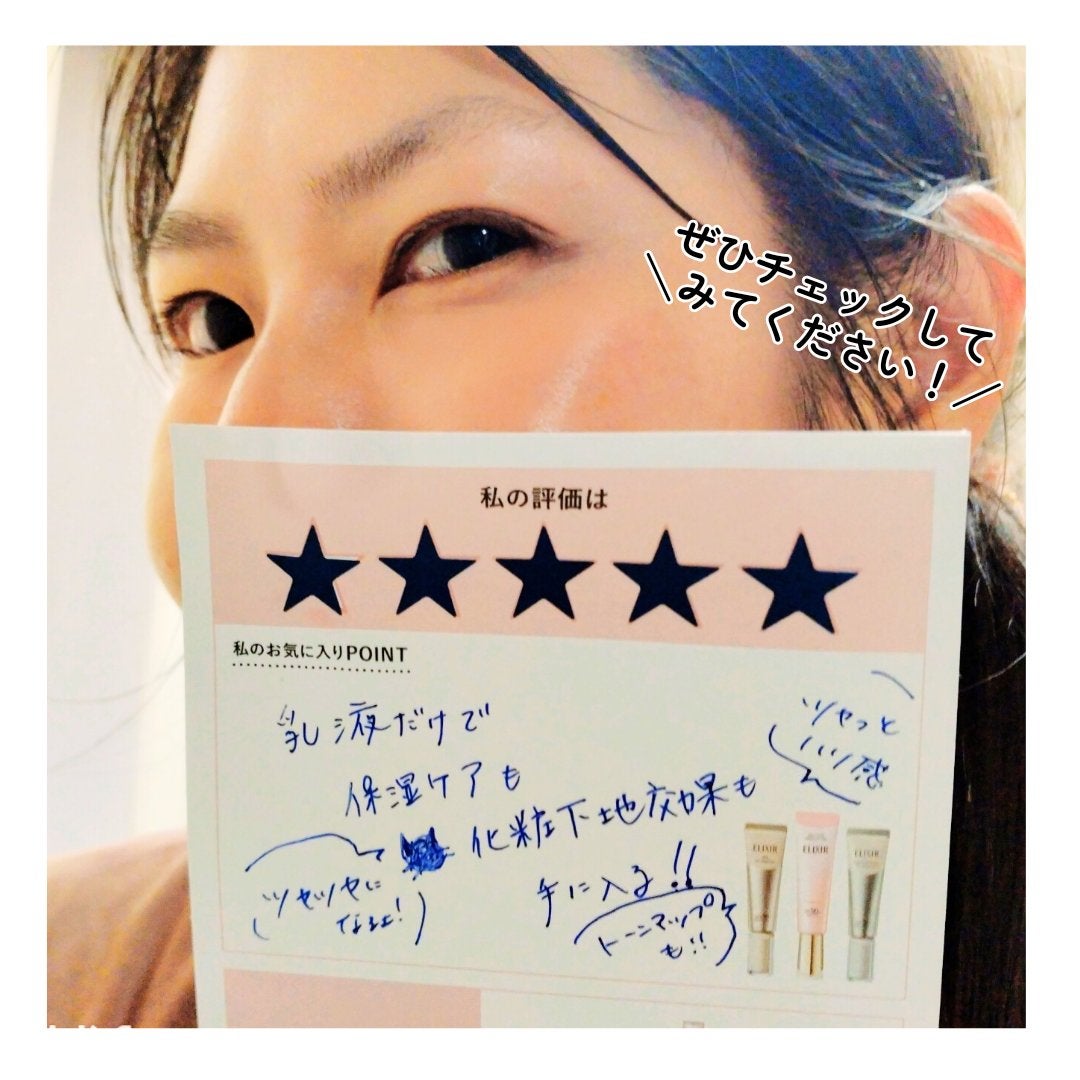 ぜひチェックして
みてください！
私の評価は
★★★★★
私のお気に入りPOINT
乳液だけで
保湿ケアも
化粧下地効果も
手に入る!!
ツヤっと
ハリ感
ツヤツヤに
なるよ!
トーンアップ
も!!
ELIXIR
ELIXIR
ELIXIR